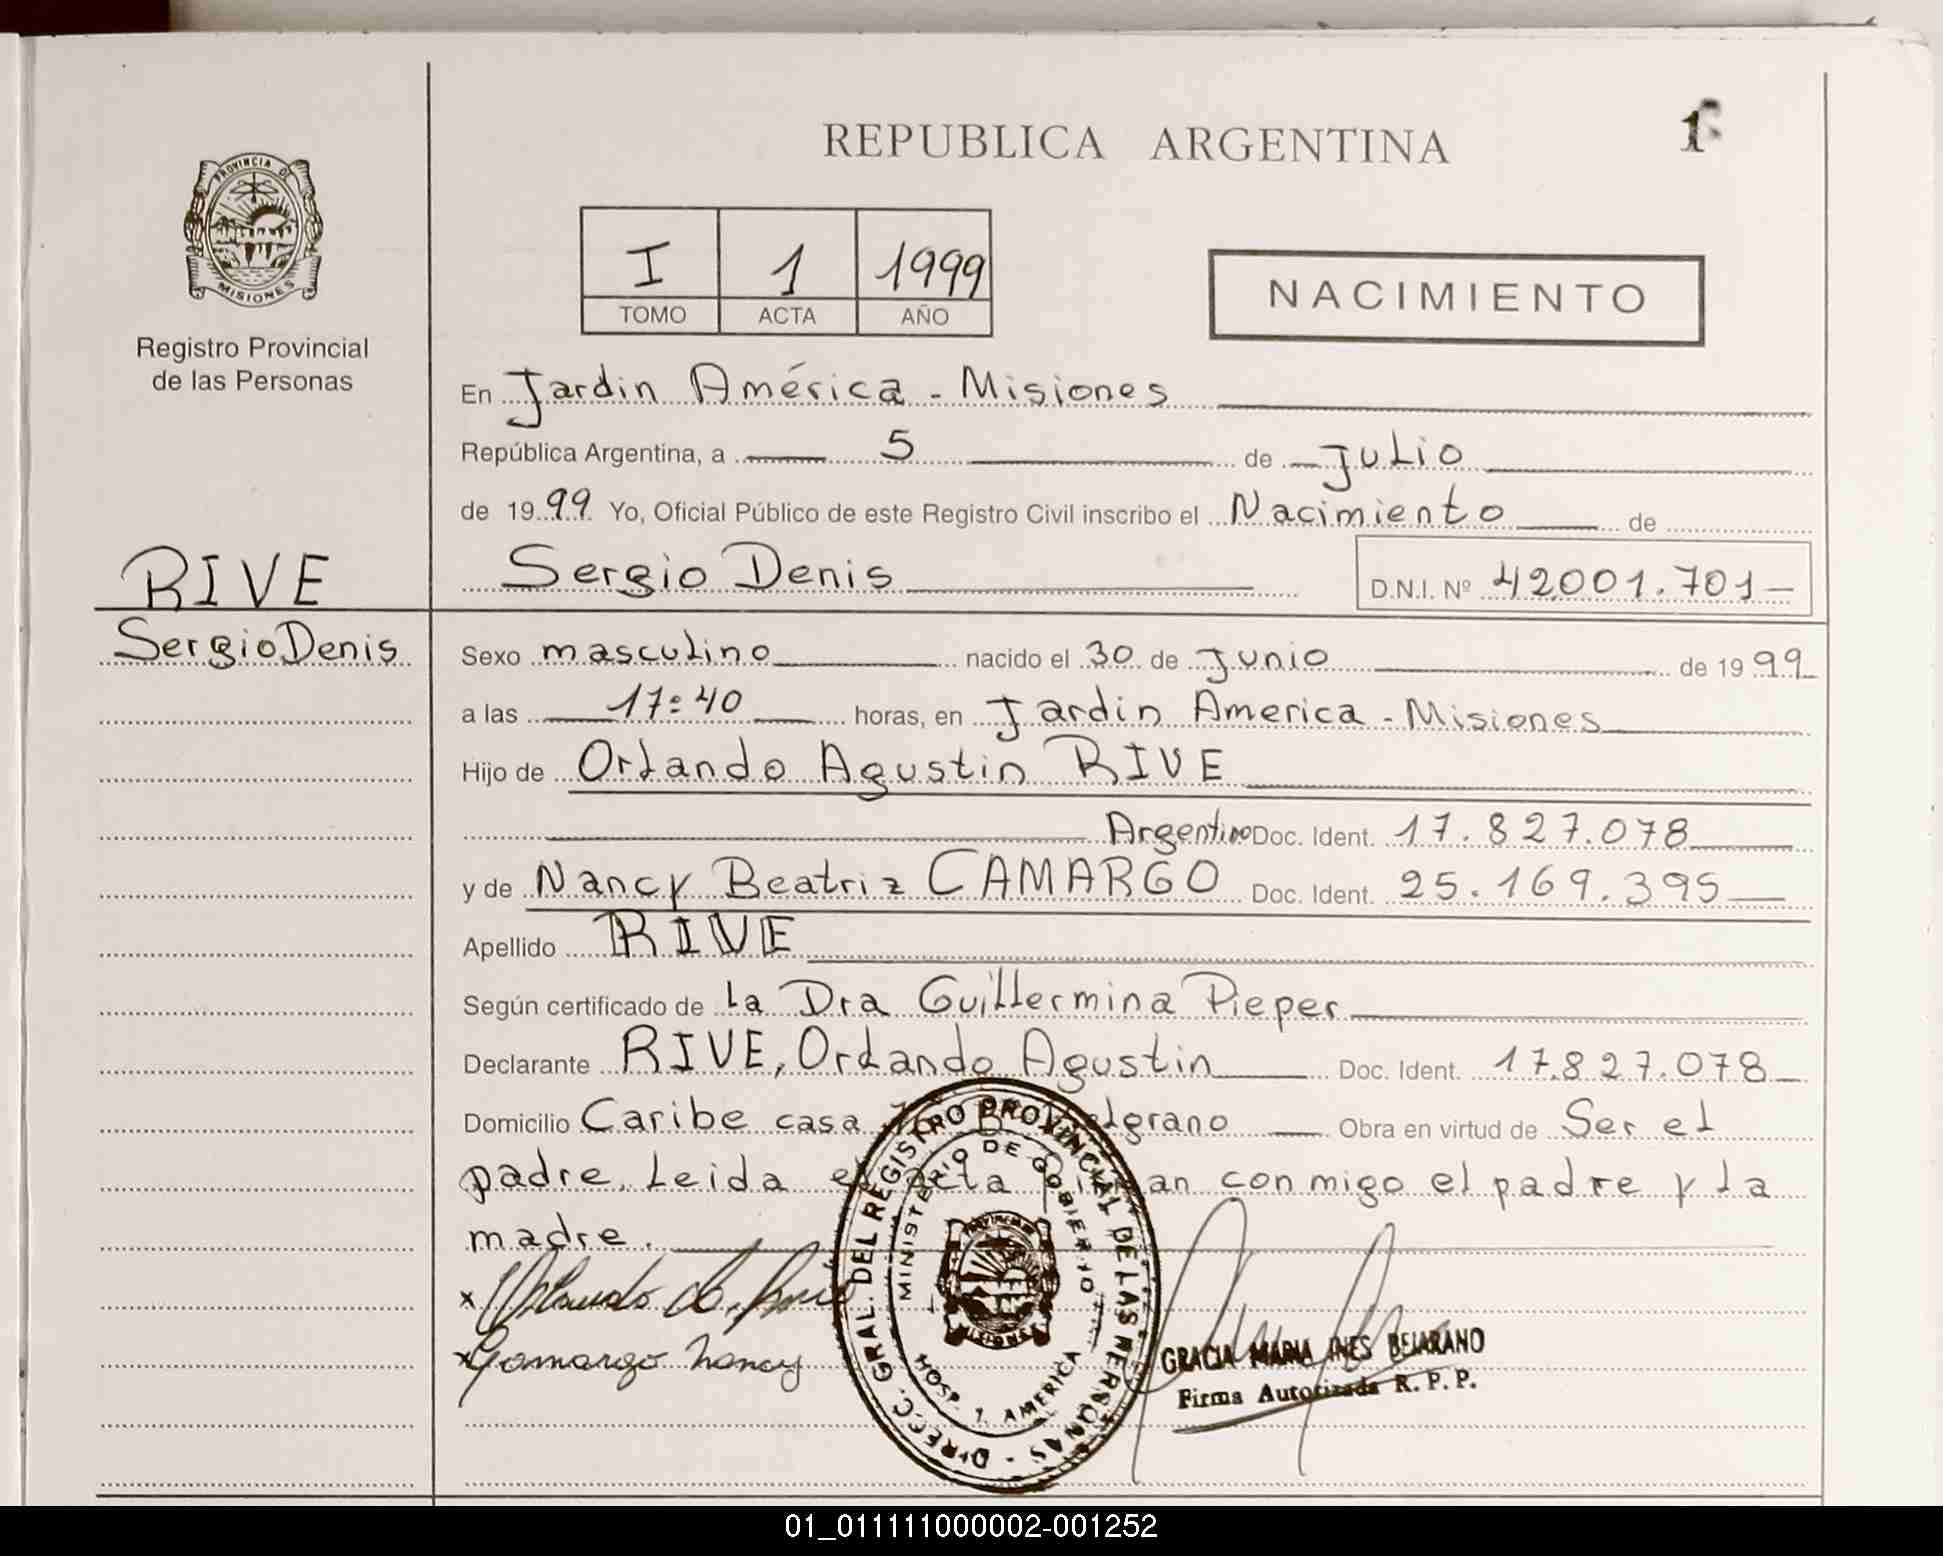 REPUBLICA ARGENTINA
1
PROVINCIA DE
MISIONES
Registro Provincial
de las Personas
I 1 1999
TOMO ACTA AÑO
NACIMIENTO
En Jardin América - Misiones
República Argentina, a 5 de Julio
de 1999 Yo, Oficial Público de este Registro Civil inscribo el Nacimiento de
Sergio Denis D.N.I. Nº 42001.701-
RIVE
Sergio Denis
Sexo masculino nacido el 30 de Junio de 1999
a las 17:40 horas, en Jardin America - Misiones
Hijo de Orlando Agustin RIVE
Argentino Doc. Ident. 17.827.078
y de Nancy Beatriz CAMARGO Doc. Ident. 25.169.395
Apellido RIVE
Según certificado de la Dra Guillermina Pieper
Declarante RIVE, Orlando Agustin Doc. Ident. 17.827.078
Domicilio Caribe casa Obra en virtud de Ser el
padre. Leida el Acta conmigo el padre y la
madre.
Camargo Nancy
DIRECC. GRAL. DEL REGISTRO PROVINCIAL DE LAS PERSONAS -
MINISTERIO DE GOBIERNO
HOSP. J. AMERICA
GRACIA MARIA INES BEJARANO
Firma Autorizada R.P.P.
01_011111000002-001252